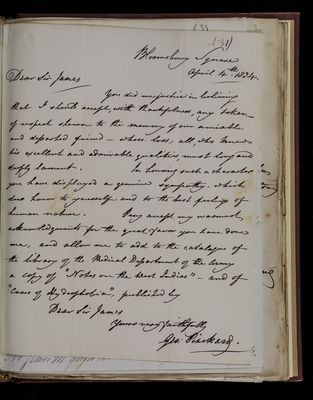 131
Bloomsbury Square
April 4th. 1834.
Dear Sir James
You did me justice in believing
that I should accept, with thankfulness, any token
of respect shewn to the memory of our amiable
and departed friend – whose loss, all, who knew
his excellent and admirable qualities, must long and
deeply lament. In honoring such a character
you have displayed a genuine sympathy, which
does honor to yourself, and to the best feelings of
human nature. Pray accept my warmest
acknowledgments for the great favor you have done
me, and allow me to add to the catalogue of
the library of the Medical Department of the Army
a copy of "Notes on the West Indies" – and of
"Cases of Hydrophobia", published by
Dear Sir James
Yours very faithfully,
Geo: Pinckard.
Sir James M